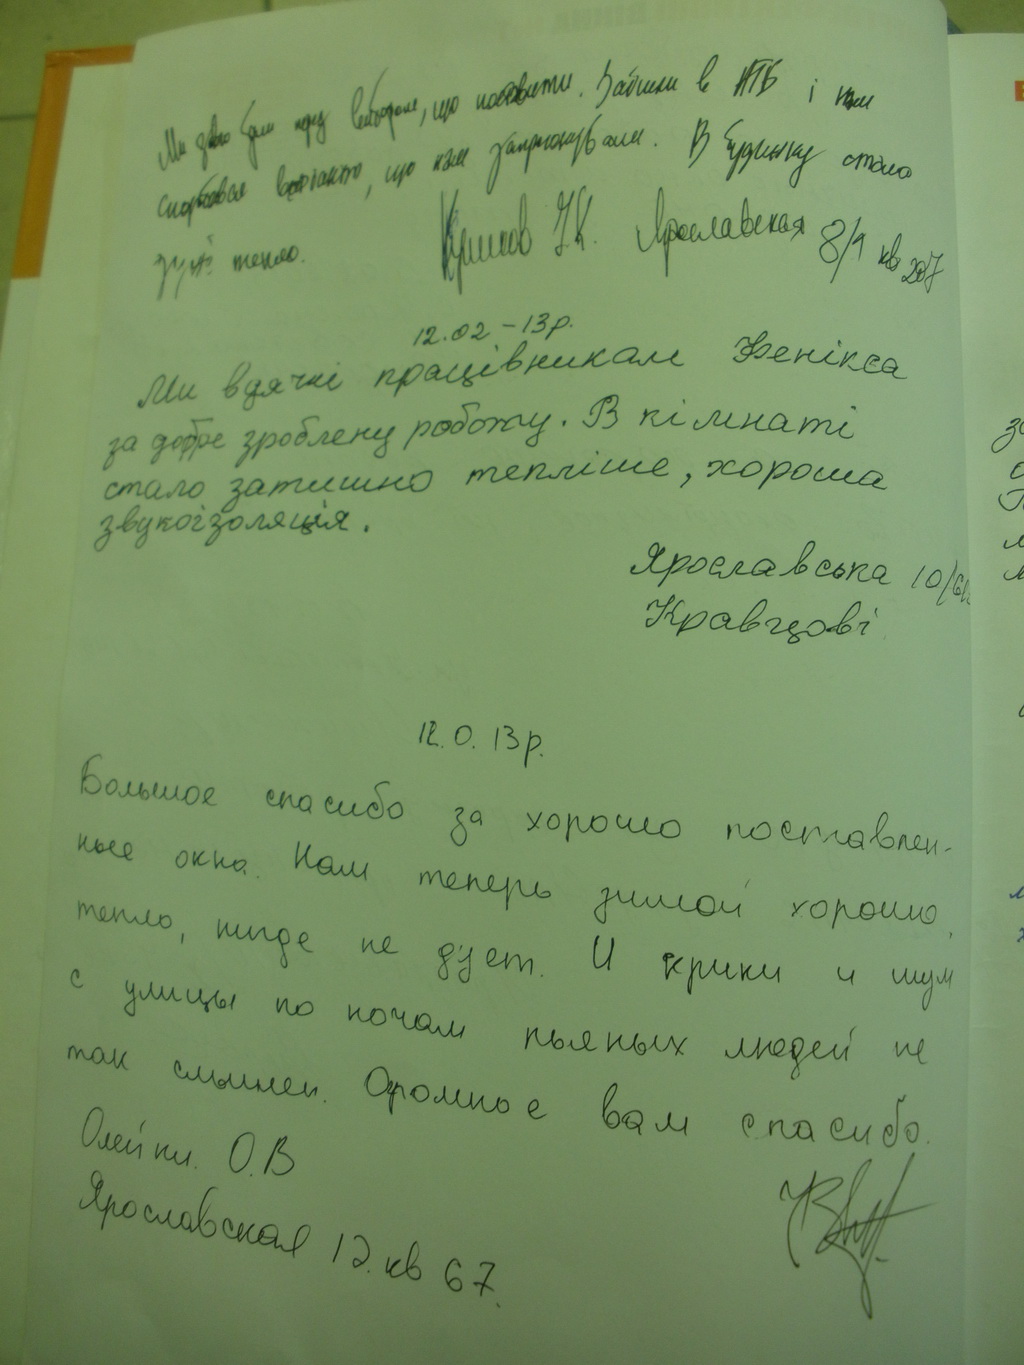 Ми довго були перед вибором, що поставити. Зайшли в АТБ і нам
сподобався варіант, що нам запропонували. В будинку стало
дуже тепло. Ярославская 8/1 кв 207
12.02 - 13р.
Ми вдячні працівникам Фенікса
за добре зроблену роботу. В кімнаті
стало затишно тепліше, хороша
звукоізоляція.
Ярославська 10/
Кравцові
12.0. 13р.
Большое спасибо за хорошо поставлен-
ные окна. Нам теперь зимой хорошо,
тепло, нигде не дует. И крики и шум
с улицы по ночам пьяных людей не
так слышен. Огромное вам спасибо.
О.В
Ярославская 12. кв 67.